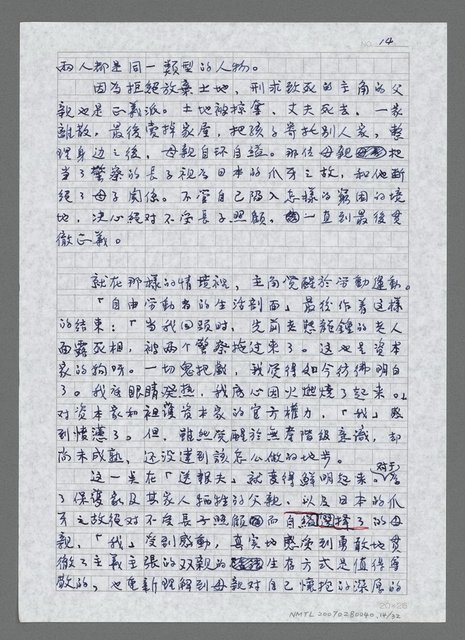 NO. 14
兩人都是同一類型的人物。
因為拒絕放棄土地，刑求致死的主角的父
親也是正義派。土地被掠奪，丈夫死去，一家
離散，最後賣掉家屋，把孩子寄托別人家，整
理身边之後，母親自环自縊。那位母親把
當了警察的長子視為日本的爪牙之故，和他斷
絕了母子関係。不管自己陷入怎樣的窮困的境
地，決心絕對不受長子照顧，一直到最後貫
徹正義。
就在那樣的情境裡，主角覚醒於労動運動。
「自由労動者的生活剖面」最後作着這樣
的結束：「當我回頭時，先前老態龍鍾的老人
面露死相，被兩个警察拖过來了。這也是資本
家的狗呀。一切鬼把戲，我覚得如今彷彿明白
了。我底眼睛発热，我底心因火燃燒了起來。」
対資本家和袒護資本家的官方權力，「我」感
到憤懣了。但，雖他覚醒於無產階級意識，却
尚未成熟，还沒達到該怎么做的地步。
這一点在「送報夫」就变得鮮明起來。対于為
了保護家及其家人犧牲的父親，以及日本的爪
牙之故絕対不受長子照顧而自縊選擇了的母
親，「我」受到感動，真实地感受到勇敢地貫
徹了主義主張的双親的生存方式是值得尊
敬的，也重新理解到母親対自己懷抱的深厚的
20×25
NMTL 20070280040, 14/32